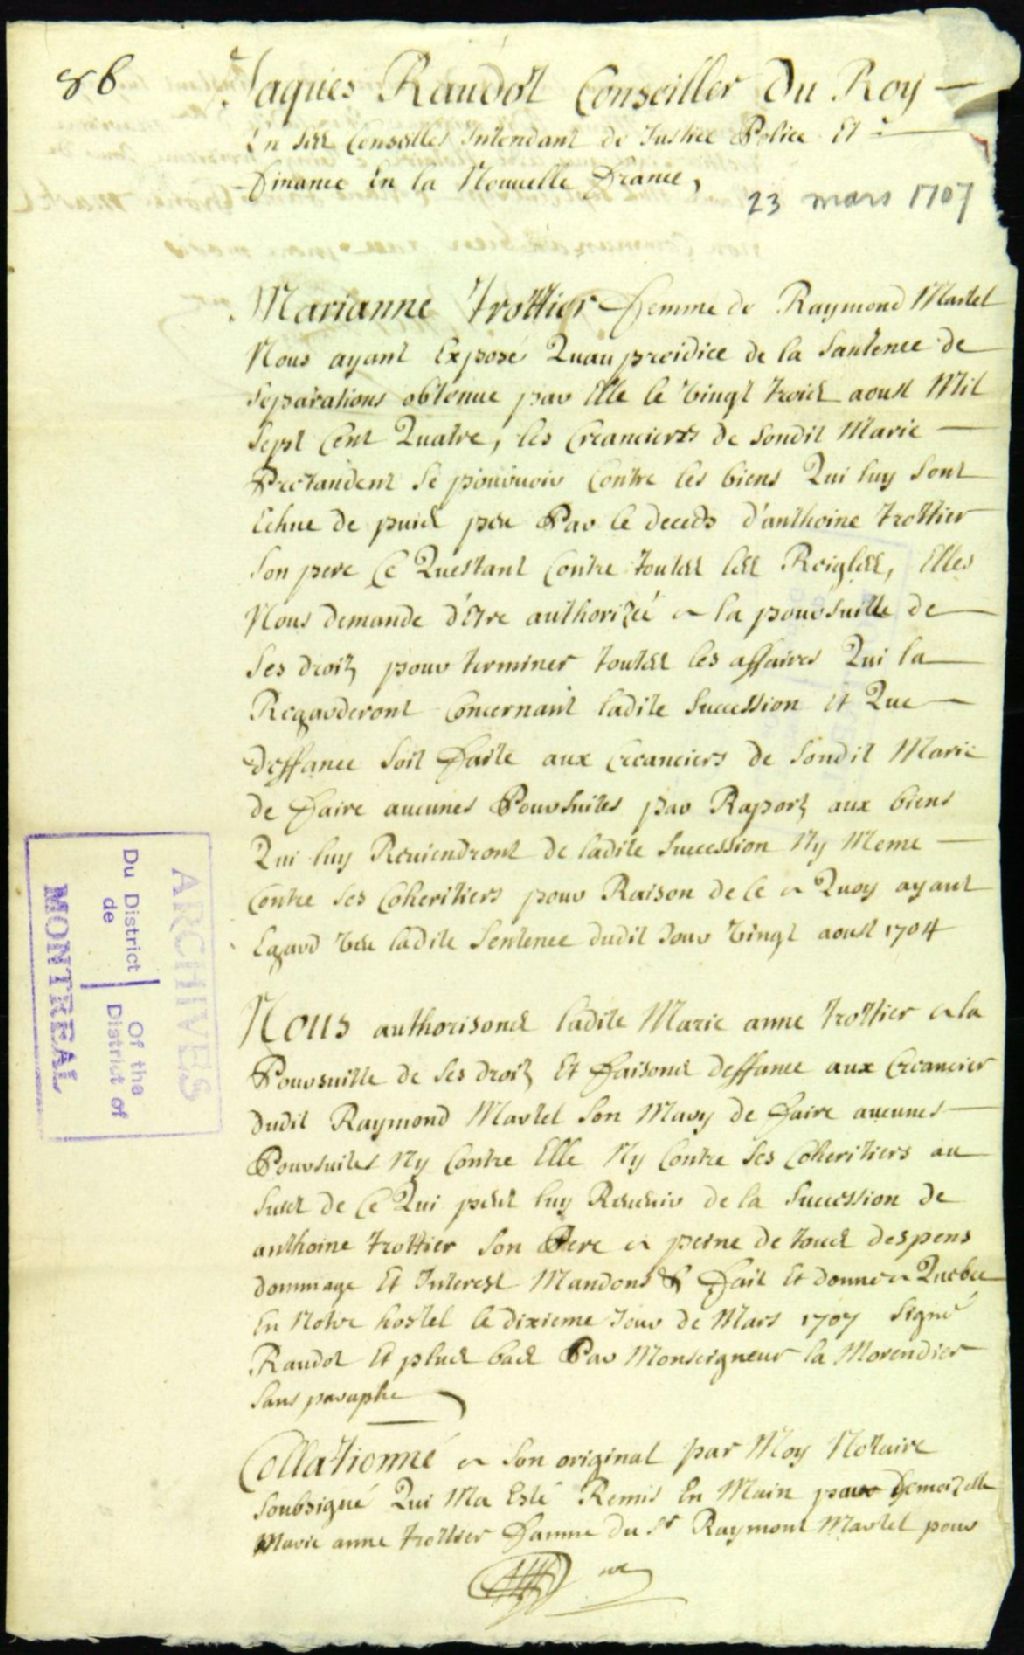 86
Jaques Raudot Conseiller Du Roy
En ses Conseilles Intendant de Justice Police Et
finance En la Nouuelle france,
23 mars 1707
Marianne Trottier femme de Raymond Martel
Nous ayant Exposé Quau preidice de la Santence de
Separations obtenue par Elle le vingt trois aoust Mil
Sept Cent Quatre, les Creanciers de Sondit Marie
Pretandent Se pouruoir Contre les biens Qui luy sont
Echue de puis peu Par le deceds d'anthoine Trottier
Son pere Ce Questant Contre toutes les Reigles, Elles
Nous demande d'Etre authorizéé a la poursuitte de
Ses droits pour terminer toutes les affaires Qui la
Regarderont Concernant ladite Succession et Que
deffance Soit faite aux Creanciers de Sondit Marie
de faire aucunes Poursuites par Raport aux biens
Qui luy Reuiendront de ladite Succession Ny Meme
Contre Ses Coheritiers pour Raison de Ce a Quoy ayant
Egard Veu ladite Sentence dudit Jour vingt aoust 1704
Nous authorisons ladite Marie anne Trottier a la
Poursuitte de Ses droits Et faisons deffance aux Creancier
dudit Raymond Martel Son Mary de faire aucunes
Poursuites Ny Contre Elle Ny Contre Ses Coheritiers au
Suiet de Ce Qui peut luy Reuenir de la Succession de
anthoine Trottier Son Pere a peine de tous despens
dommage Et Interest Mandons & fait Et donné a Quebec
En Notre hostel le dixieme Jour de Mars 1707 Signé
Raudot Et plus bas Par Monseigneur la Morendier
Sans paraphe
Collationné a Son original par Moy Notaire
Soubsigné Qui Ma Esté Remis En Main par demoizelle
Marie anne Trottier famme du Sr Raymont Martel pour
ARCHIVES
Du District | Of the
de | District of
MONTREAL